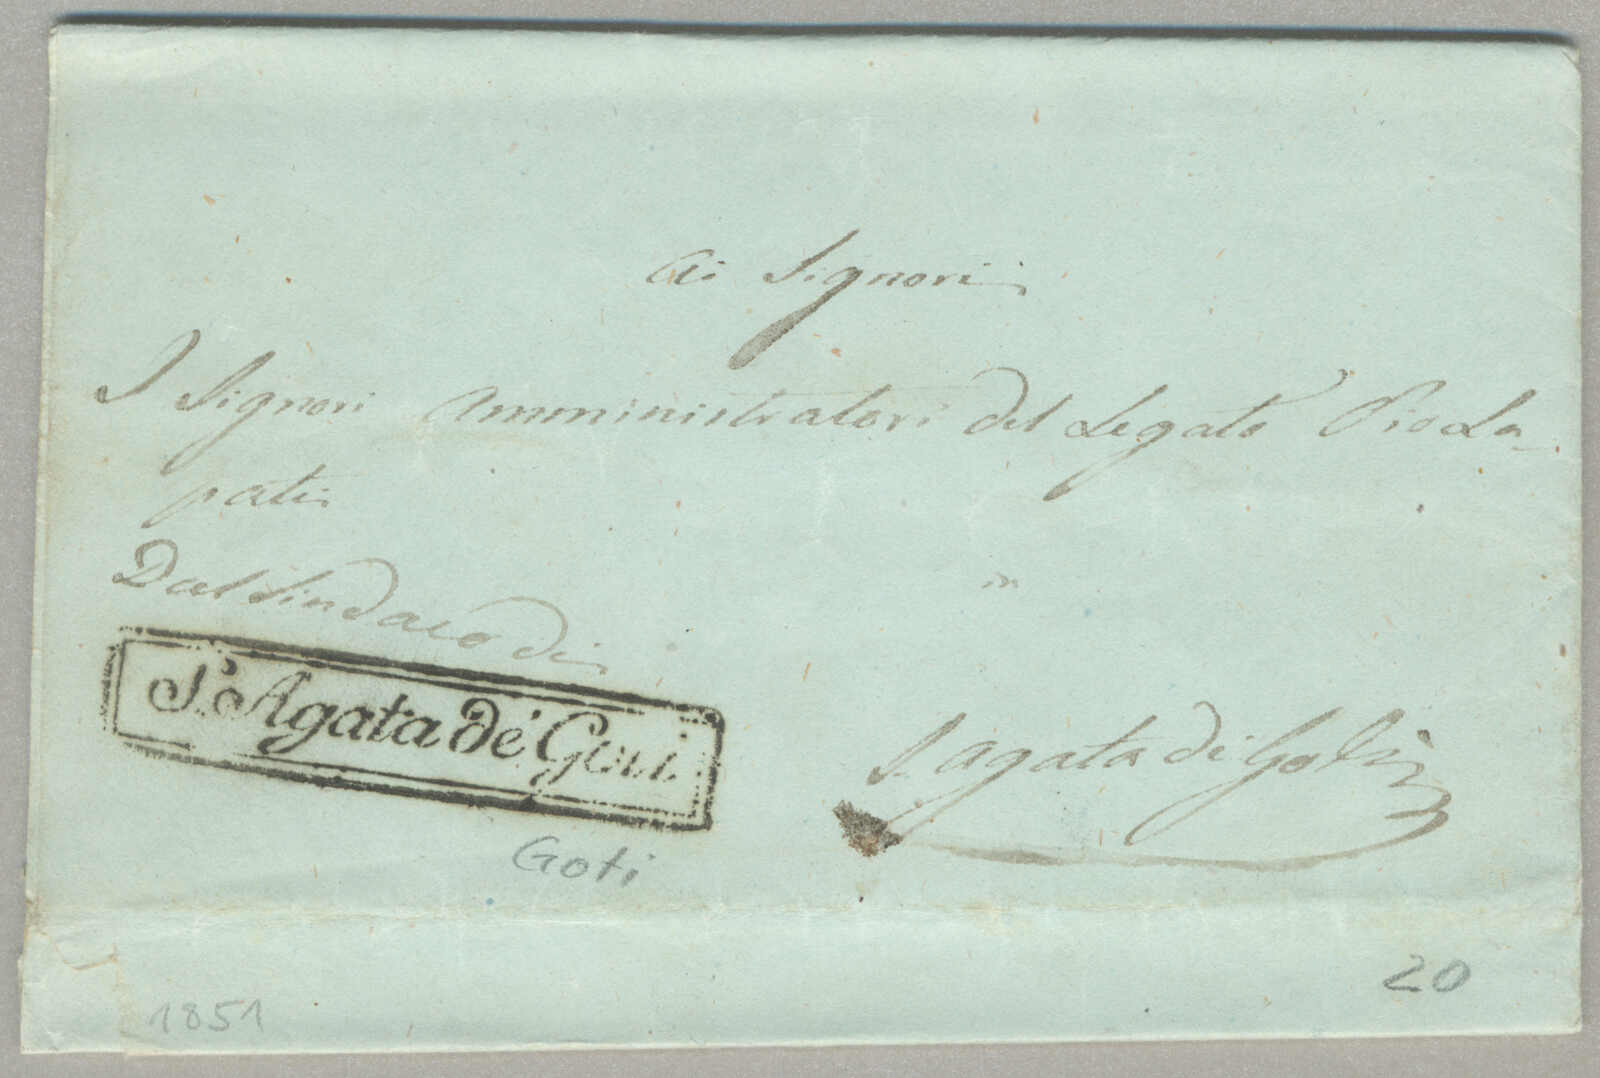 Ai Signori
I Signori Amministratori del Legato Pio La-
pati
Dal Sindaco di
S. Agata de' Goti
in
S. Agata di Goti
Goti
20
1851